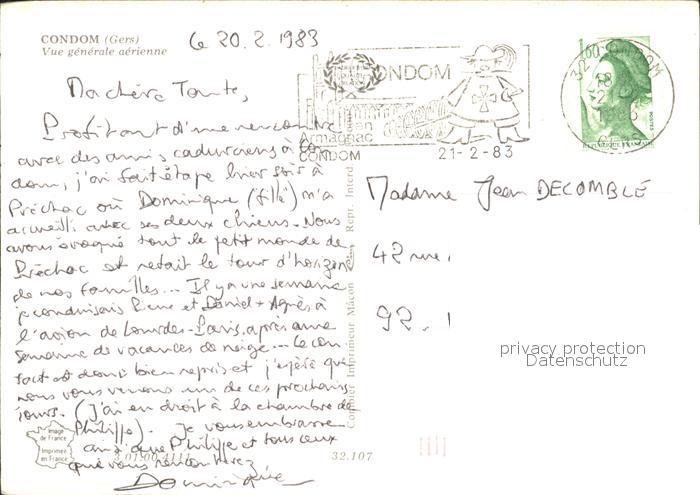 CONDOM (Gers)
Vue générale aérienne
le 20.2.1983
CONDOM
en
Armagnac
CONDOM
21-2-83
32100 CONDOM
GERS
1,60
POSTES
REPUBLIQUE FRANCAISE
Ma chère Tante,
Profitant d'une rencontre
avec des amis cadurciens à Con
dom, j'ai fait étape hier soir à
Préchac où Dominique (fille) m'a
accueilli avec ses deux chiens. Nous
avons évoqué tout le petit monde de
Préchac et refait le tour d'horizon
de nos familles... Il y a une semaine
je conduisais et Daniel + Agnès à
l'avion de Lourdes-Paris, après une
semaine de vacances de neige... Le con
tact est donc bien repris et j'espère que
nous vous verrons un de ces prochains
jours. (J'ai eu droit à la chambre de
Philippe). Je vous embrasse
ainsi que Philippe et tous ceux
que vous rencontrerez
Dominique
Madame Jean DECOMBLE
42 rue
92
privacy protection
Datenschutz
Combier Imprimeur Mâcon Repr. Interd
Image
de France
Imprimée
en France
3.01.00.4111
32.107